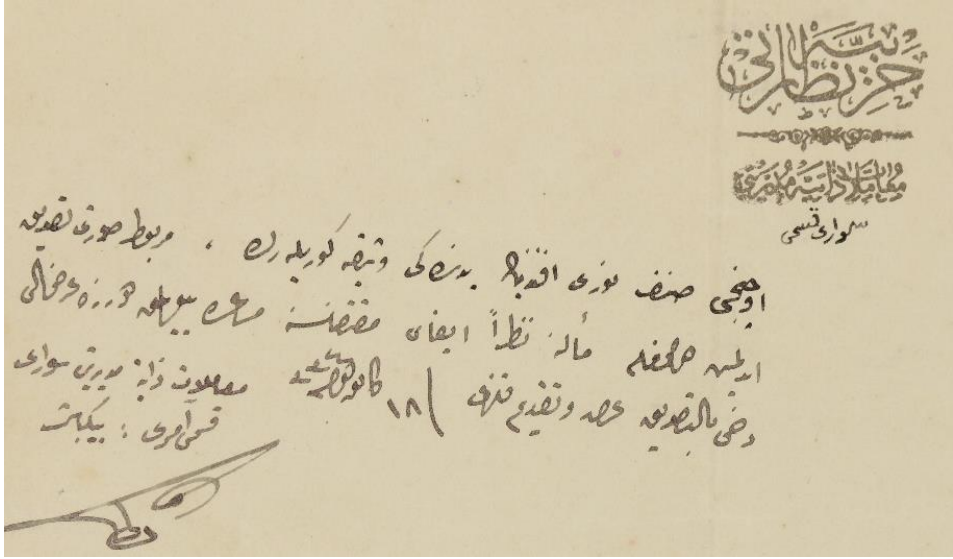 حربيه نظارتى
معاملات ذاتيه مديريتى
سوارى قسمى
اوچنجى صنف نورى افندينك يدنده كى وثيقه كوريله رك ، مربوط صورتى تصديق
ايدلمش اولمغله مآلنه نظراً ايفاى مقتضاسنه مساعده بيورلمق اوزره عرضحالى
دخى بالتصديق عرض وتقديم قلندى ١٨ كانون
معاملات ذاتيه مديريتى سوارى
قسمى آمرى : بيكباشى